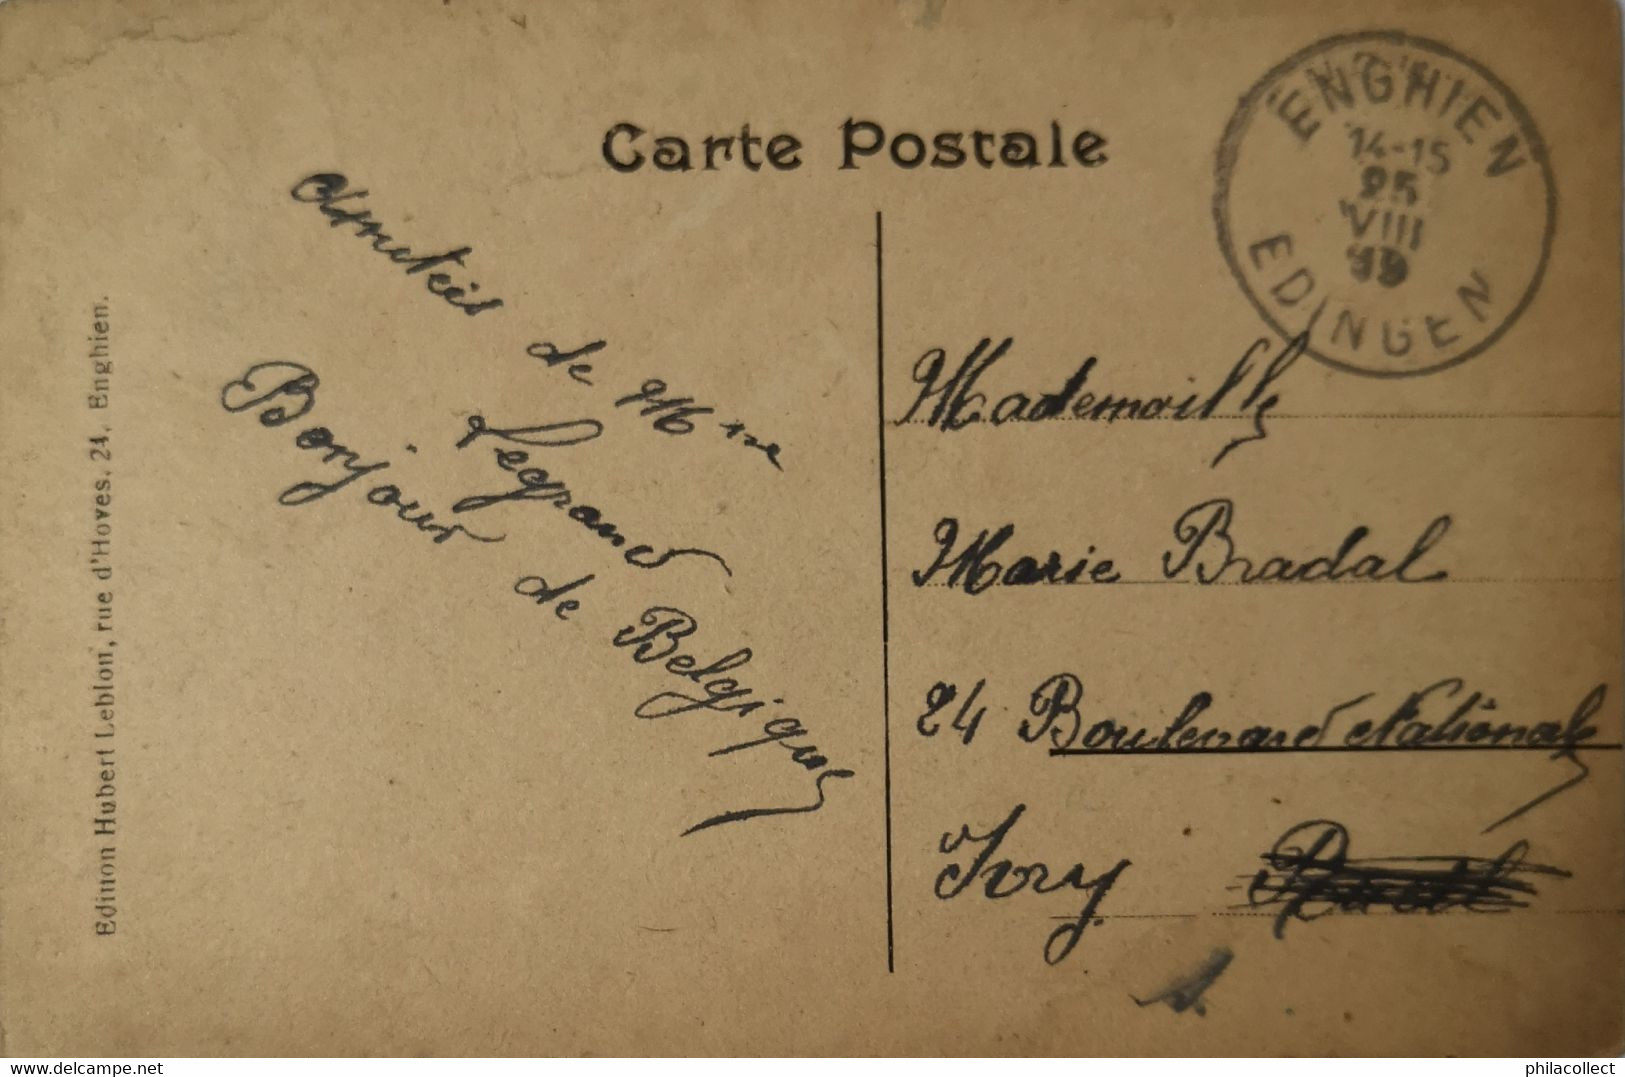 Carte Postale
ENGHIEN
14-15
25
VIII
19
EDINGEN
Amitiés
de Mme
Legrand
Bonjour
de Belgique
Mademoiselle
Marie Bradal
24 Boulevard Nationale
Ivry
Edition Hubert Leblon, rue d'Hoves, 24, Enghien.
delcampe.net
philacollect